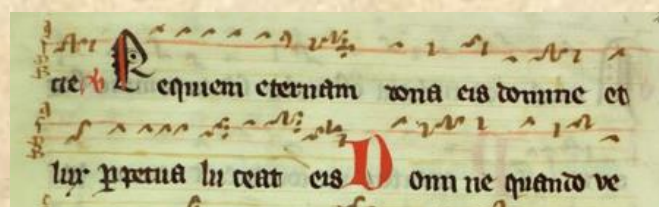 cie R Requiem eternam dona eis domine et
lux ꝑpetua lu ceat eis Domi ne quando ve